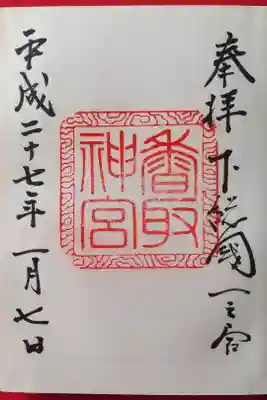 奉拝 下総國一之宮
香取
神宮
平成二十七年一月七日